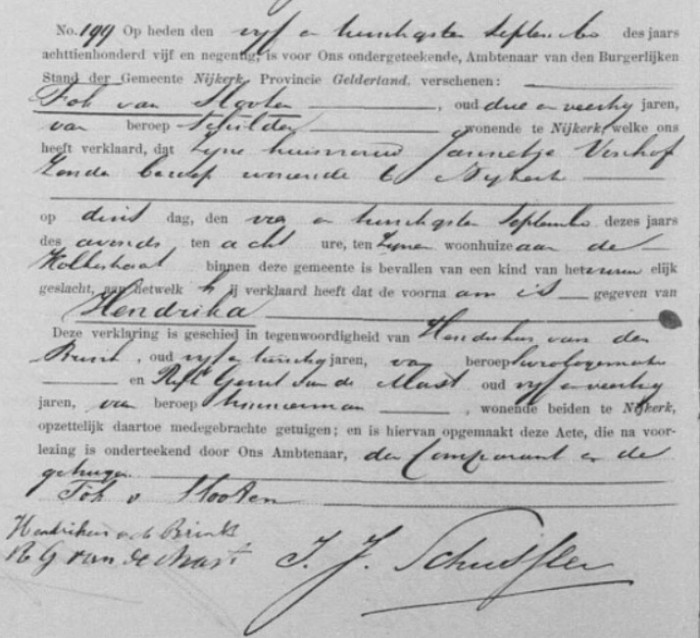 No. 199 Op heden den vijf en twintigsten September des jaars
achttienhonderd vijf en negentig, is voor Ons ondergeteekende, Ambtenaar van den Burgerlijken
Stand der Gemeente Nijkerk, Provincie Gelderland, verschenen:
Joh van Slooten, oud drie en veertig jaren,
van beroep schilder, wonende te Nijkerk, welke ons
heeft verklaard, dat zijne huisvrouw Jannetje Verhoef
zonder beroep wonende te Nijkerk
op dins dag, den vier en twintigsten September dezes jaars
des avonds ten acht ure, ten zijnen woonhuize aan de
Kolkstraat binnen deze gemeente is bevallen van een kind van het vrouw elijk
geslacht, aan hetwelk hij verklaard heeft dat de voorna am is gegeven van
Hendrika
Deze verklaring is geschied in tegenwoordigheid van Hendrikus van den
Brink, oud vijf en twintig jaren, van beroep horologemaker
en Gerrit van de Mast oud vijf en veertig
jaren, van beroep timmerman, wonende beiden te Nijkerk,
opzettelijk daartoe medegebrachte getuigen; en is hiervan opgemaakt deze Acte, die na voor-
lezing is onderteekend door Ons Ambtenaar, den Comparant en de
getuigen
Joh v Slooten
Hendrikus v d Brink
R G van de Mast J. J. Schussler